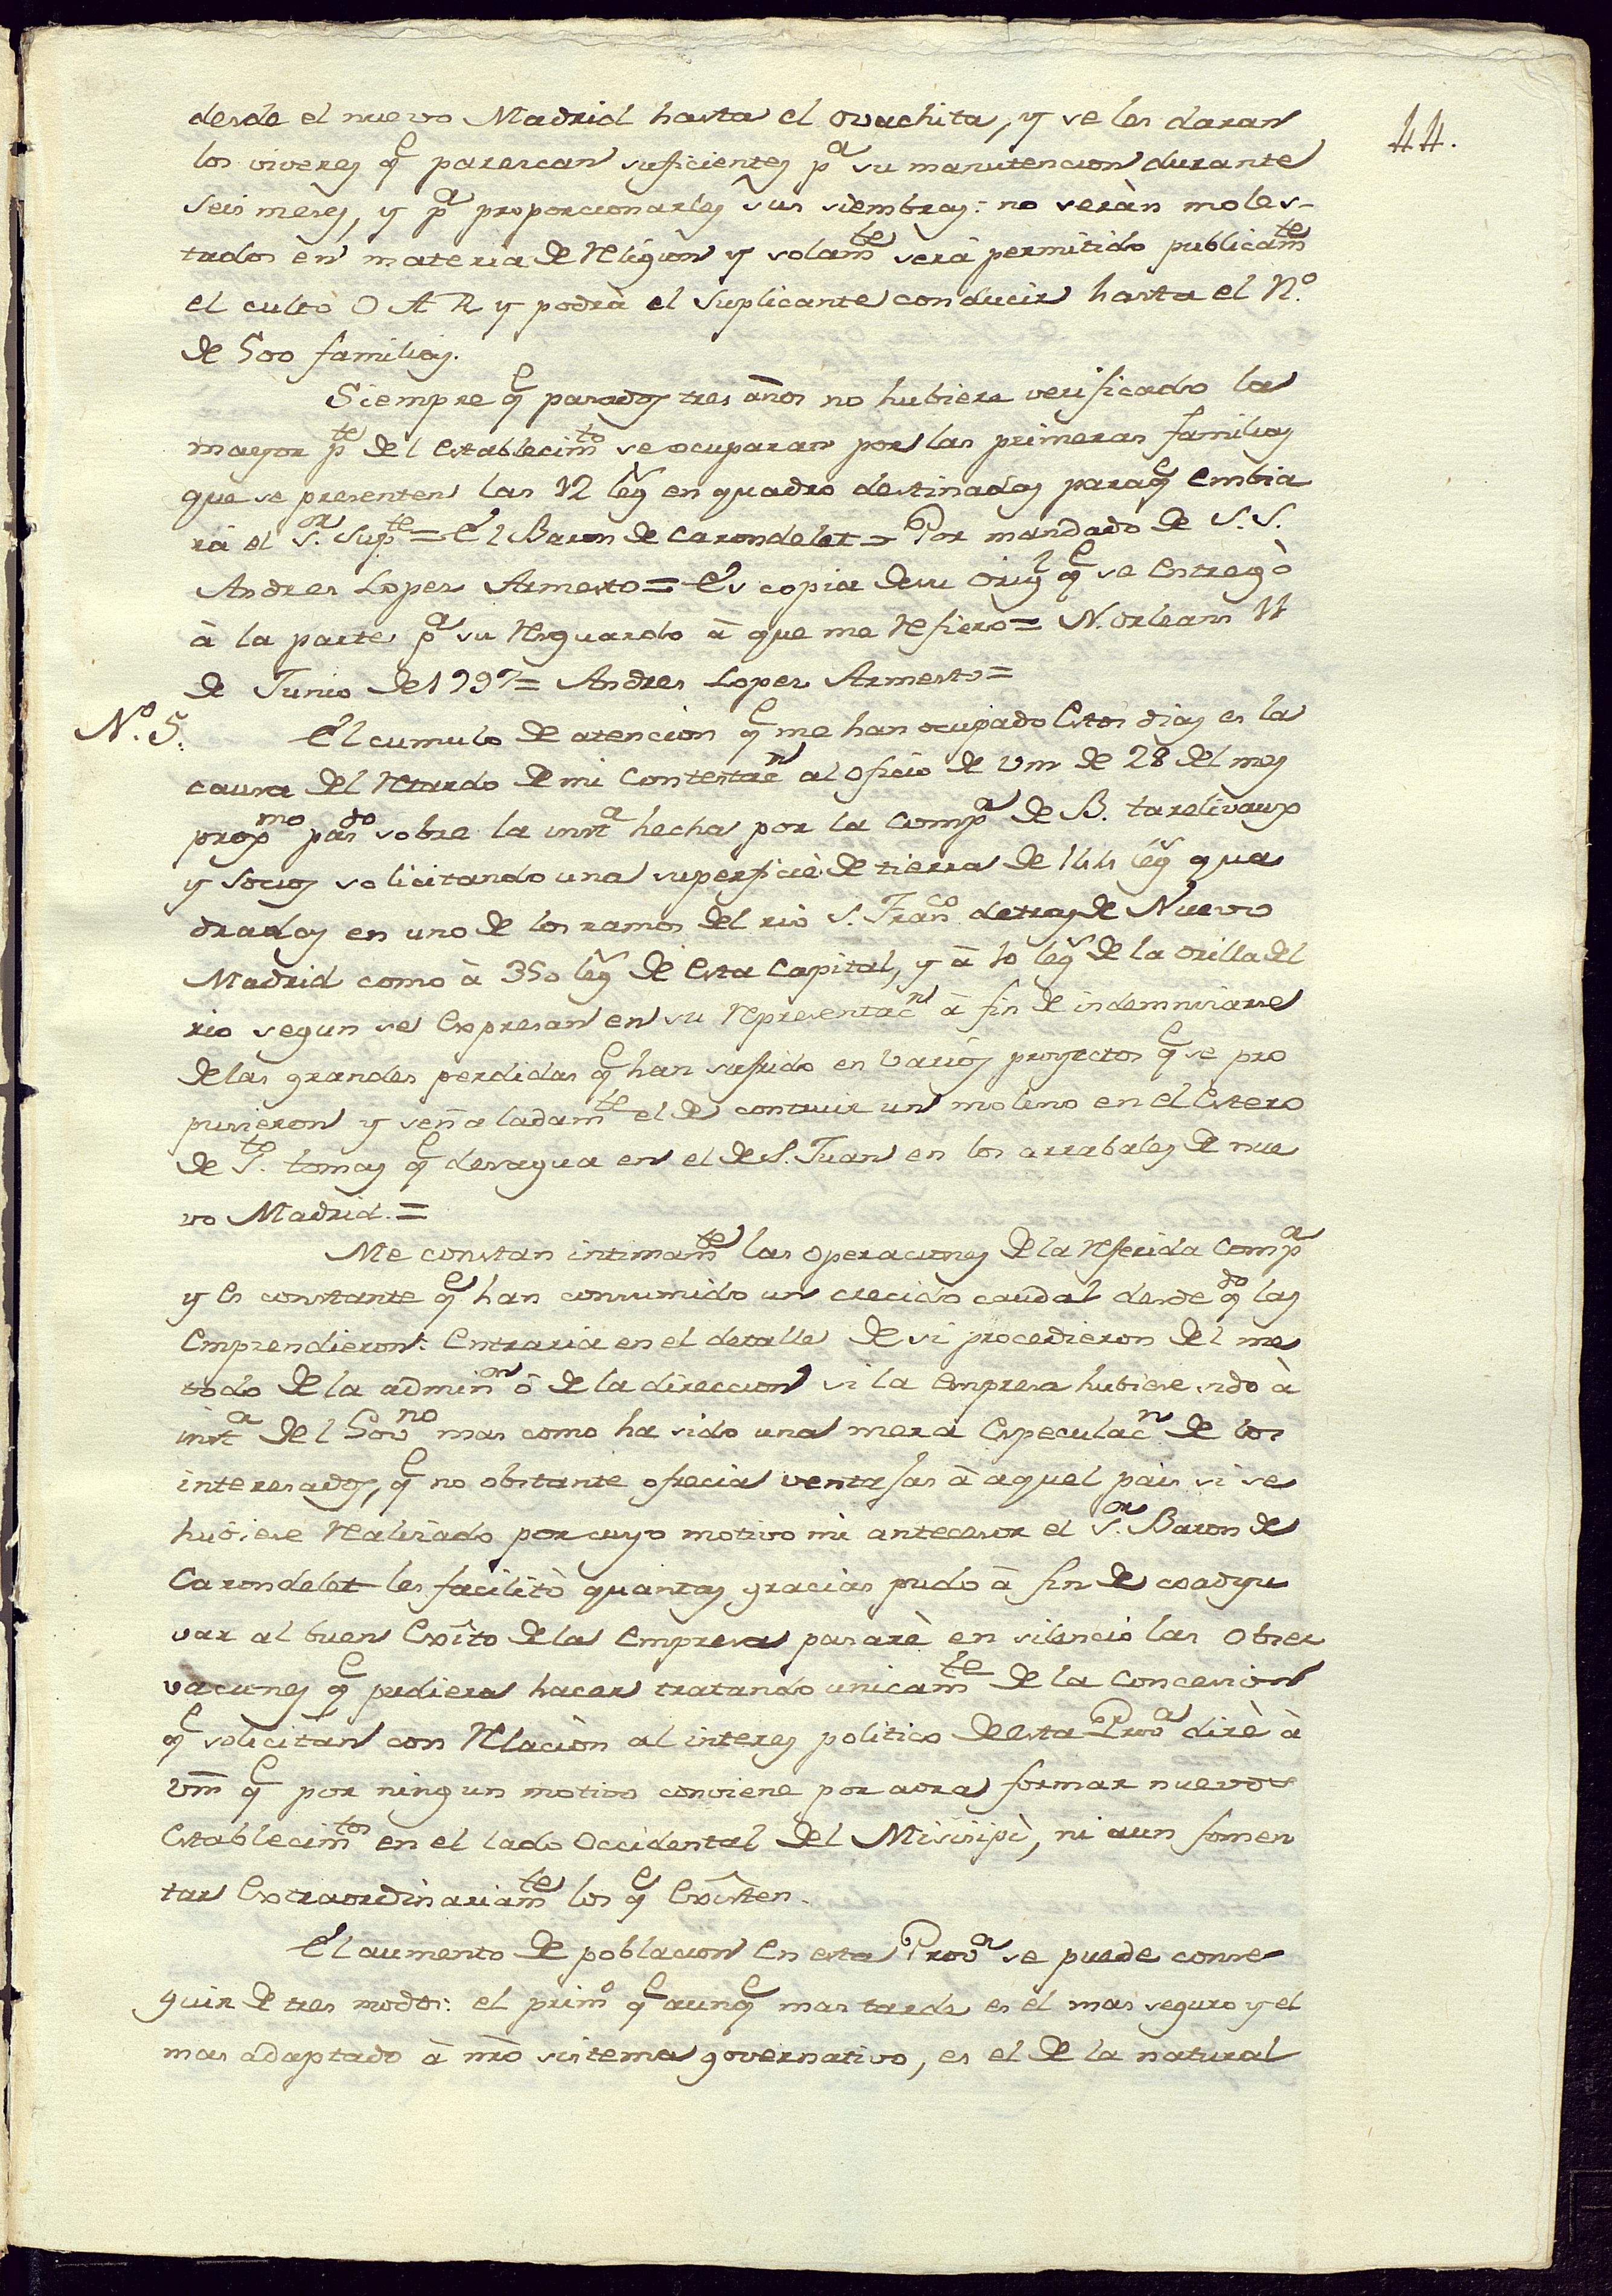 44.
desde el nuevo Madrid hasta el Ovachita, y se les daran
los viveres q.e parescan suficientes p.a su manutencion durante
seis meses, y p.a proporcionarles sus siembras: no seràn moles-
tados en materia de Religion y solam.te serà permitido publicam.te
el culto C A R y podrà el Suplicante conducir hasta el N.o
de 500 familias.
Siempre q.e pasados tres años no hubiere verificado la
mayor p.te del Establecim.to se ocuparan por las primeras familias
que se presenten las 12 leg.s en quadro destinadas paraq.e embia
rà el S.or Sup.te = El Baron de Carondelet = Por mandado de S.S.
Andres Lopes Armesto = Es copia desu Orig.l q.e se entregò
à la parte p.a su Resguardo à que me Refiero = N. Orleans 14
de Junio de 1797 = Andres Lopes Armesto =
N.o 5. El cumulo de atencion q.e me han ocupado Estos dias es la
causa del Retardo de mi Contestac.n al oficio de Vm de 28 del mes
prox.mo pas.do sobre la inst.a hecha por la Comp.a de B. tarelivaux
y Socios solicitando una superficie de tierra de 144 leg.s qua
dradas en uno de los ramos del rio S. Fran.co detras de Nuevo
Madrid como à 350 leg.s de Esta Capital, y à 10 leg.s de la orilla del
rio segun se Expresan en su Representac.n à fin de indemnisarse
delas grandes perdidas q.e han sufrido en varios proyectos q.e se pro
pusieron y señaladam.te el de contruir un molino en el Estero
de S.to tomas q.e desagua en el de S. Juan en los arrabales de nue
vo Madrid. =
Me constan intimam.te las Operaciones de la Referida Comp.a
y Es constante q.e han consumido un crecido caudal desde q.do las
Emprendieron: Entraria en el detalle de si procedieron del me
todo de la admin.on ò de la direccion si la Empresa hubiese sido à
inst.a del Gov.no mas como ha sido una mera Especulac.n de los
interesados, q.e no obstante ofrecia ventajas à aquel pais si se
hubiese Realisado por cuyo motivo mi antecesor el S.or Baron de
Carondelet les facilitò quantas gracias pudo à fin de coadyu
var al buen Exîto de la Empresa pasarè en silencio las Obser
vaciones q.e pudiera hacer tratando unicam.te de la Concesion
q.e solicitan con Relaciòn al interes politico de esta Prov.a dirè à
Vm q.e por ningun motivo conviene por aora formar nuevos
Establecim.tos en el lado Occidental del Misisipì, ni aun fomen
tar Extraordinariam.te los q.e Exîsten.
El aumento de poblacion en esta Prov.a se puede conse-
guir de tres modos: el prim.o q.e aunq.e mas tarde es el mas seguro y el
mas adaptado à nrò sistema governativo, es el de la natural